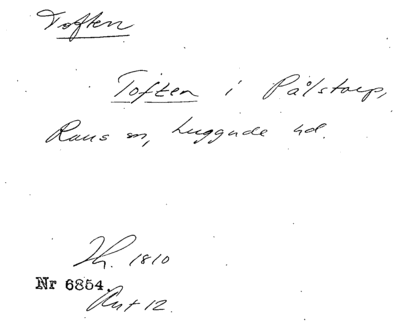 Toften
Toften i Pålstorp,
Raus sn, Luggude hd.
Jh. 1810
Nr 6854.
Ant 12.